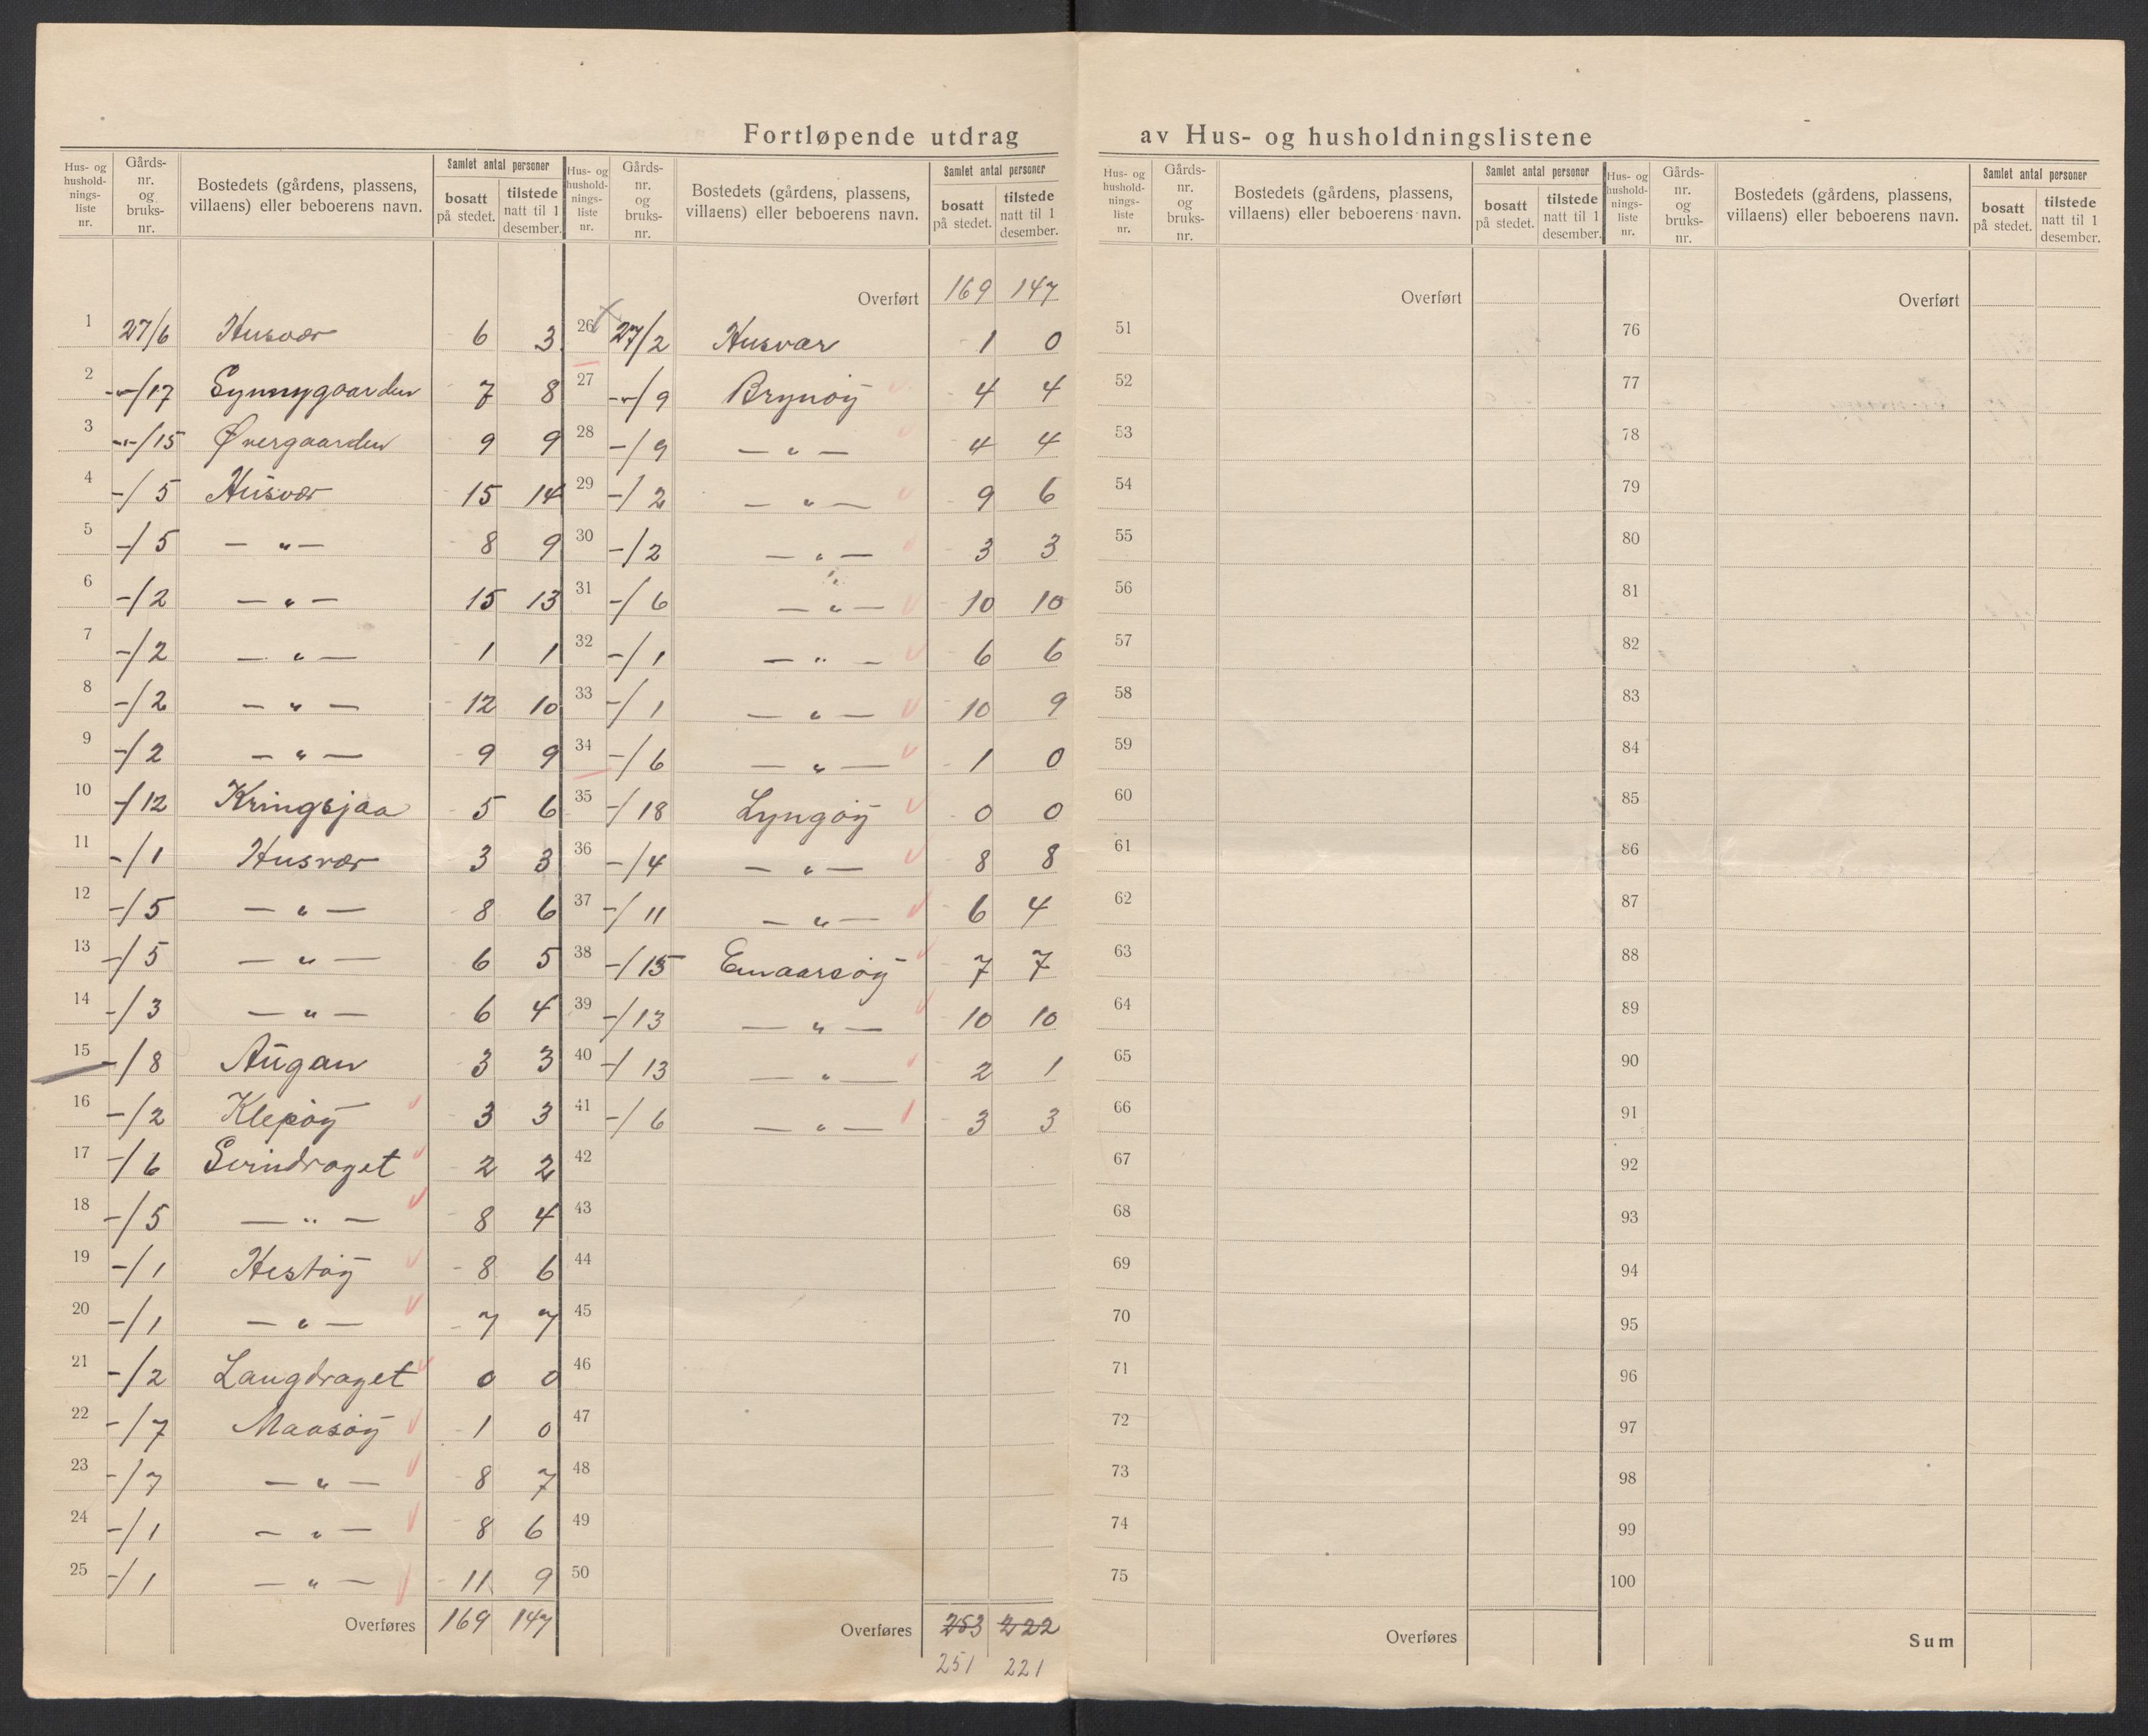 Fortløpende utdrag av Hus- og husholdningslistene
Hus- og husholdnings-liste nr. Gårds-nr. og bruks-nr. Bostedets (gårdens, plassens, villaens) eller beboerens navn. Samlet antal personer bosatt på stedet. tilstede natt til 1 desember.
1 27/6 Husvær 6 3
2 -"-/17 Synnygaarden 7 8
3 -"-/15 Øvergaarden 9 9
4 -/5 Husvær 15 14
5 -/5 — " — 8 9
6 -/2 — " — 15 13
7 -/2 — " — 1 1
8 -/2 — " — 12 10
9 -/2 — " — 9 9
10 -/12 Kringsjaa 5 6
11 -/1 Husvær 3 3
12 -/5 — " — 8 6
13 -/5 — " — 6 5
14 -/3 — " — 6 4
15 -/8 Augan 3 3
16 -/2 Klepøy 3 3
17 -/6 Svindraget 2 2
18 -/5 — " — 8 4
19 -/1 Hestøy 8 6
20 -/1 — " — 7 7
21 -/2 Langdraget 0 0
22 -/7 Maasøy 1 0
23 -/7 — " — 8 7
24 -/1 — " — 8 6
25 -/1 — " — 11 9
Overføres 169 147
Hus- og husholdnings-liste nr. Gårds-nr. og bruks-nr. Bostedets (gårdens, plassens, villaens) eller beboerens navn. Samlet antal personer bosatt på stedet. tilstede natt til 1 desember.
Overført 169 147
26 27/2 Husvær 1 0
27 -"-/9 Brynøy 4 4
28 -/9 — " — 4 4
29 -/2 — " — 9 6
30 -/2 — " — 3 3
31 -/6 — " — 10 10
32 -/1 — " — 6 6
33 -/1 — " — 10 9
34 -/6 — " — 1 0
35 -/18 Lyngøy 0 0
36 -/4 — " — 8 8
37 -/11 — " — 6 4
38 -/15 Emaarsøy 7 7
39 -/13 — " — 10 10
40 -/13 — " — 2 1
41 -/6 — " — 3 3
42
43
44
45
46
47
48
49
50
Overføres 253 222
251 221
Hus- og husholdnings-liste nr. Gårds-nr. og bruks-nr. Bostedets (gårdens, plassens, villaens) eller beboerens navn. Samlet antal personer bosatt på stedet. tilstede natt til 1 desember.
Overført
51
52
53
54
55
56
57
58
59
60
61
62
63
64
65
66
67
68
69
70
71
72
73
74
75
Overføres
Hus- og husholdnings-liste nr. Gårds-nr. og bruks-nr. Bostedets (gårdens, plassens, villaens) eller beboerens navn. Samlet antal personer bosatt på stedet. tilstede natt til 1 desember.
Overført
76
77
78
79
80
81
82
83
84
85
86
87
88
89
90
91
92
93
94
95
96
97
98
99
100
Sum